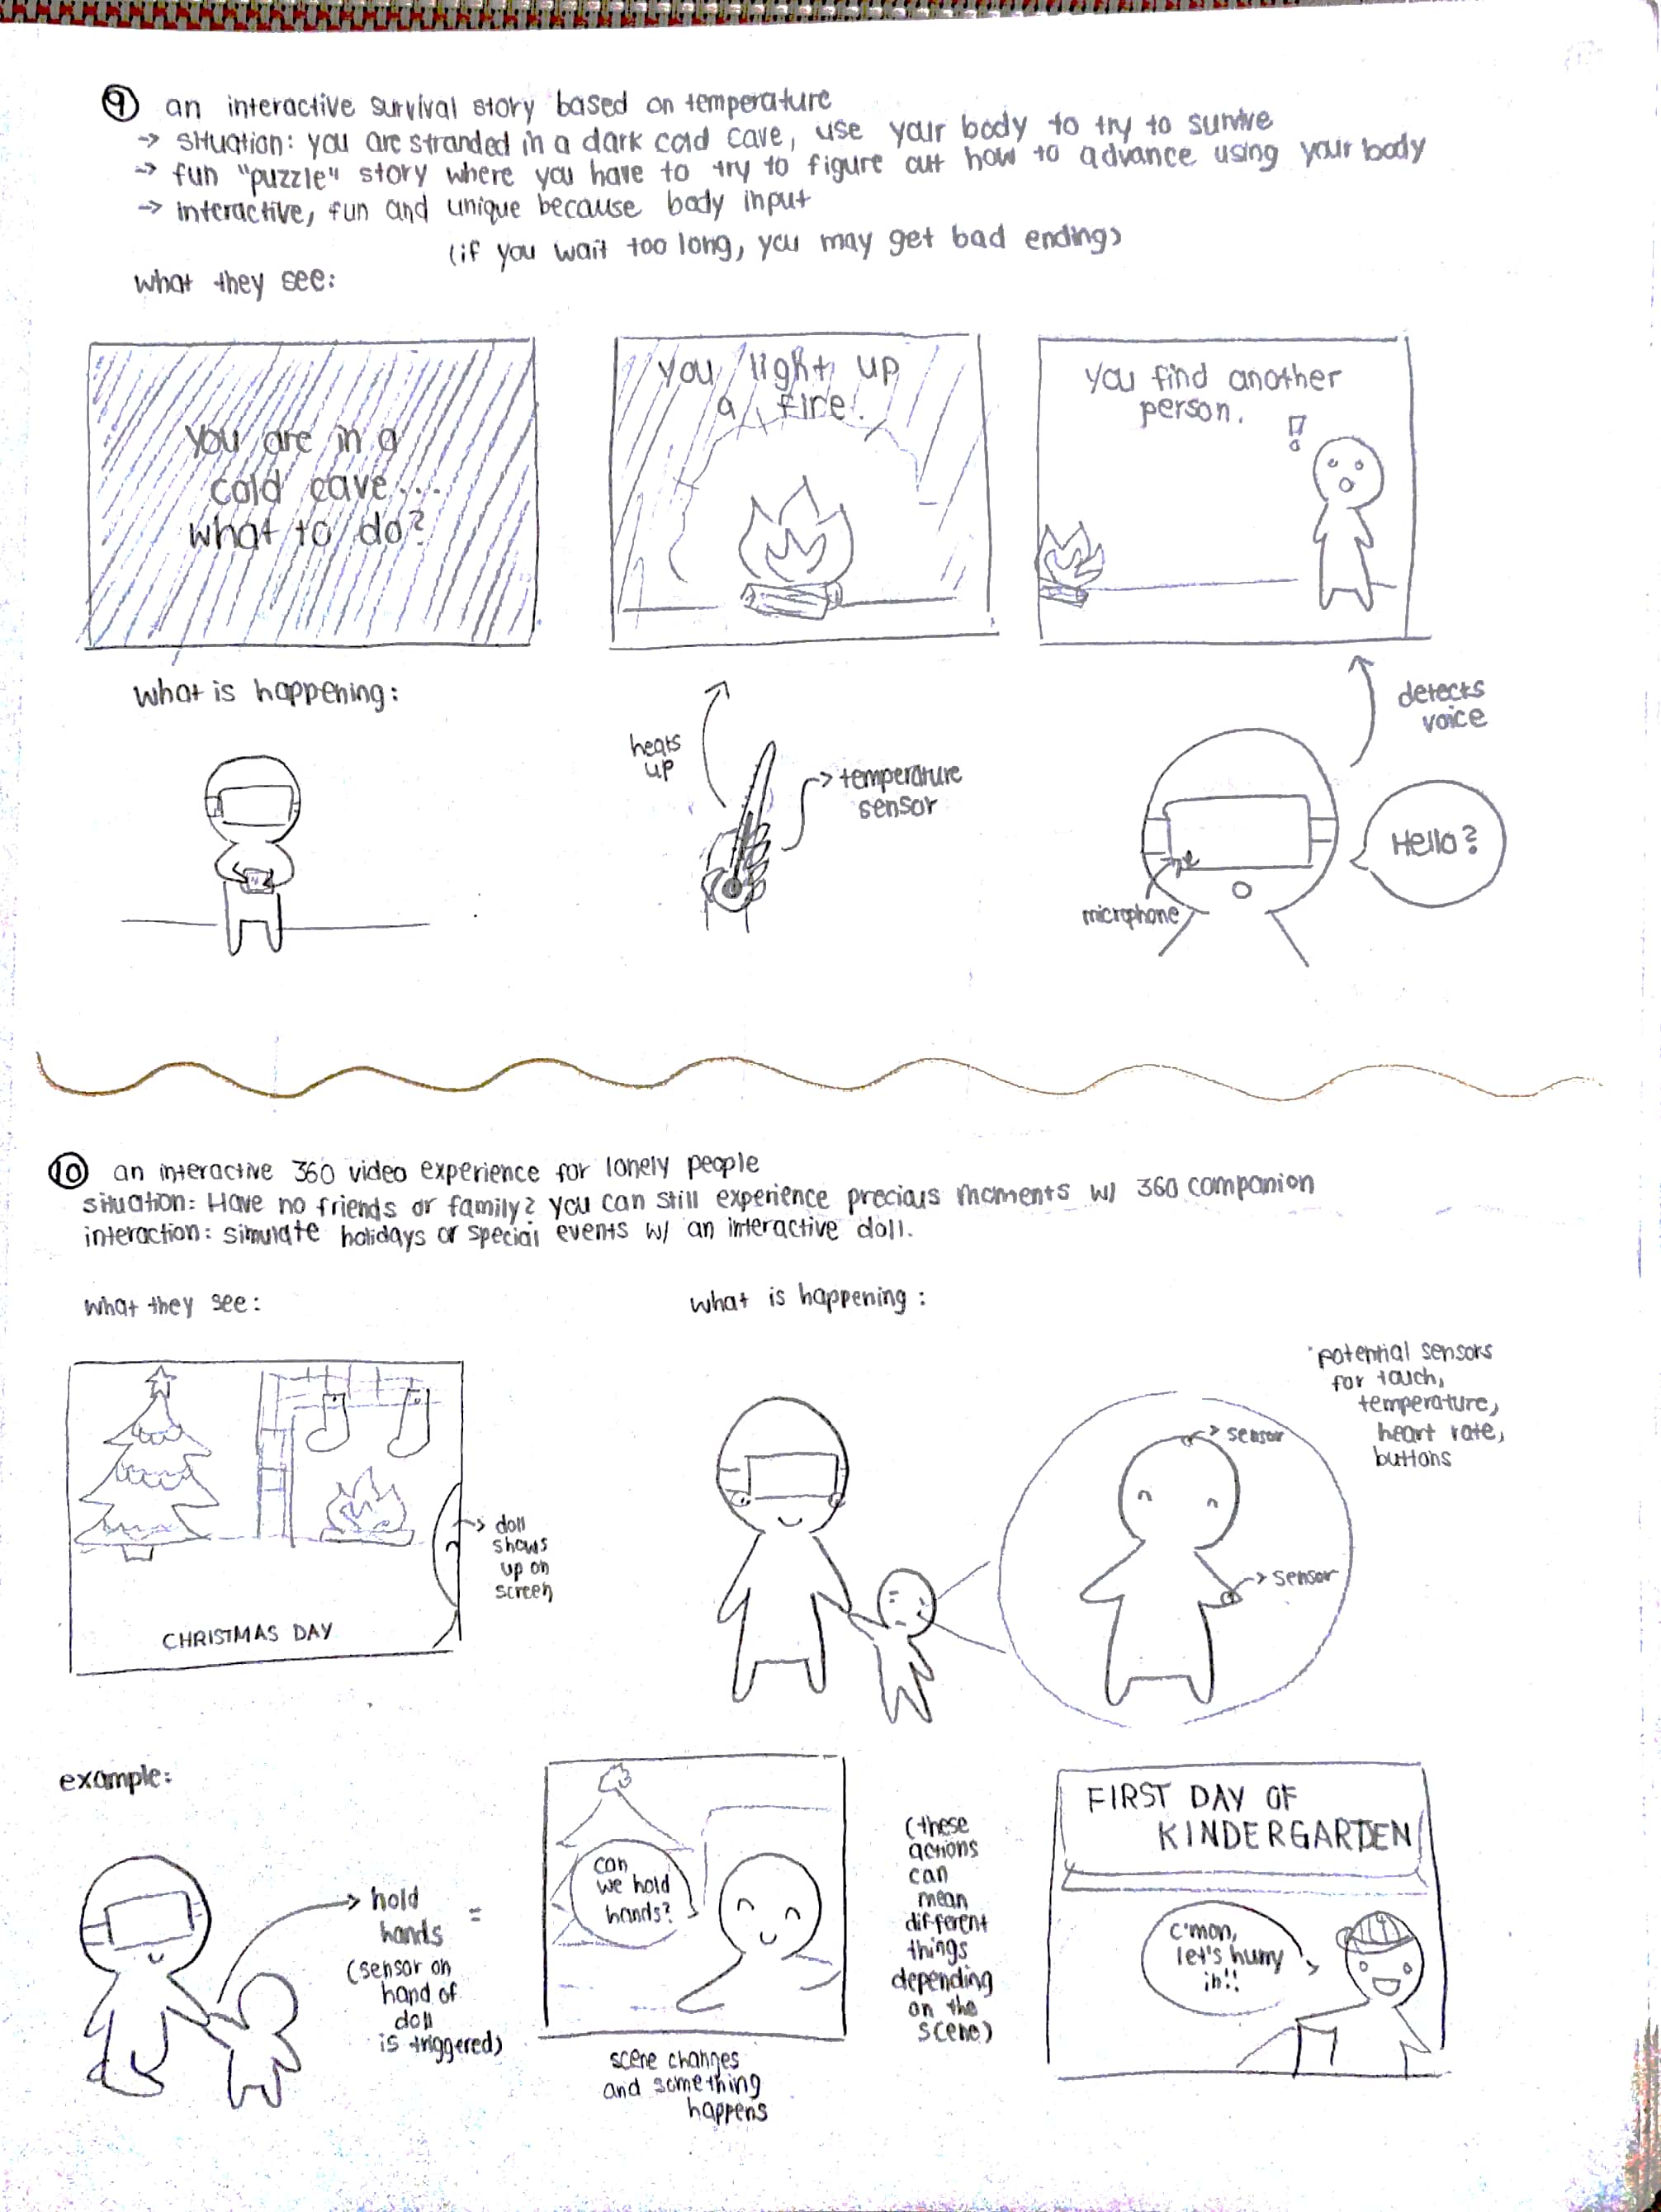 ⑨ an interactive survival story based on temperature
→ situation: you are stranded in a dark cold cave, use your body to try to survive
→ fun "puzzle" story where you have to try to figure out how to advance using your body
→ interactive, fun and unique because body input
(if you wait too long, you may get bad ending)
what they see:
You are in a
cold cave...
what to do?
you light up
a fire.
you find another
person.
!
what is happening:
heats
up
→ temperature
sensor
detects
voice
Hello?
microphone
⑩ an interactive 360 video experience for lonely people
situation: Have no friends or family? you can still experience precious moments w/ 360 companion
interaction: simulate holidays or special events w/ an interactive doll.
what they see:
what is happening:
CHRISTMAS DAY
→ doll
shows
up on
screen
→ sensor
→ sensor
*potential sensors
for touch,
temperature,
heart rate,
buttons
example:
→ hold
hands
(sensor on
hand of
doll
is triggered)
=
can
we hold
hands?
scene changes
and something
happens
(these
actions
can
mean
different
things
depending
on the
scene)
FIRST DAY OF
KINDERGARTEN
C'mon,
let's hurry
in!!